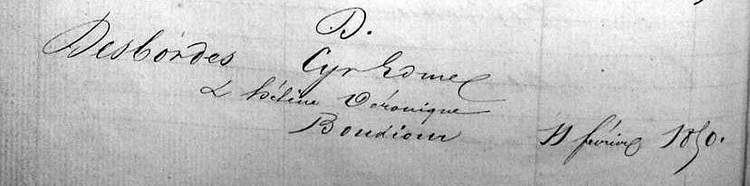 D.
Desbordes Cyr Edme
& hélène Véronique
Boudiou 11 février 1850.